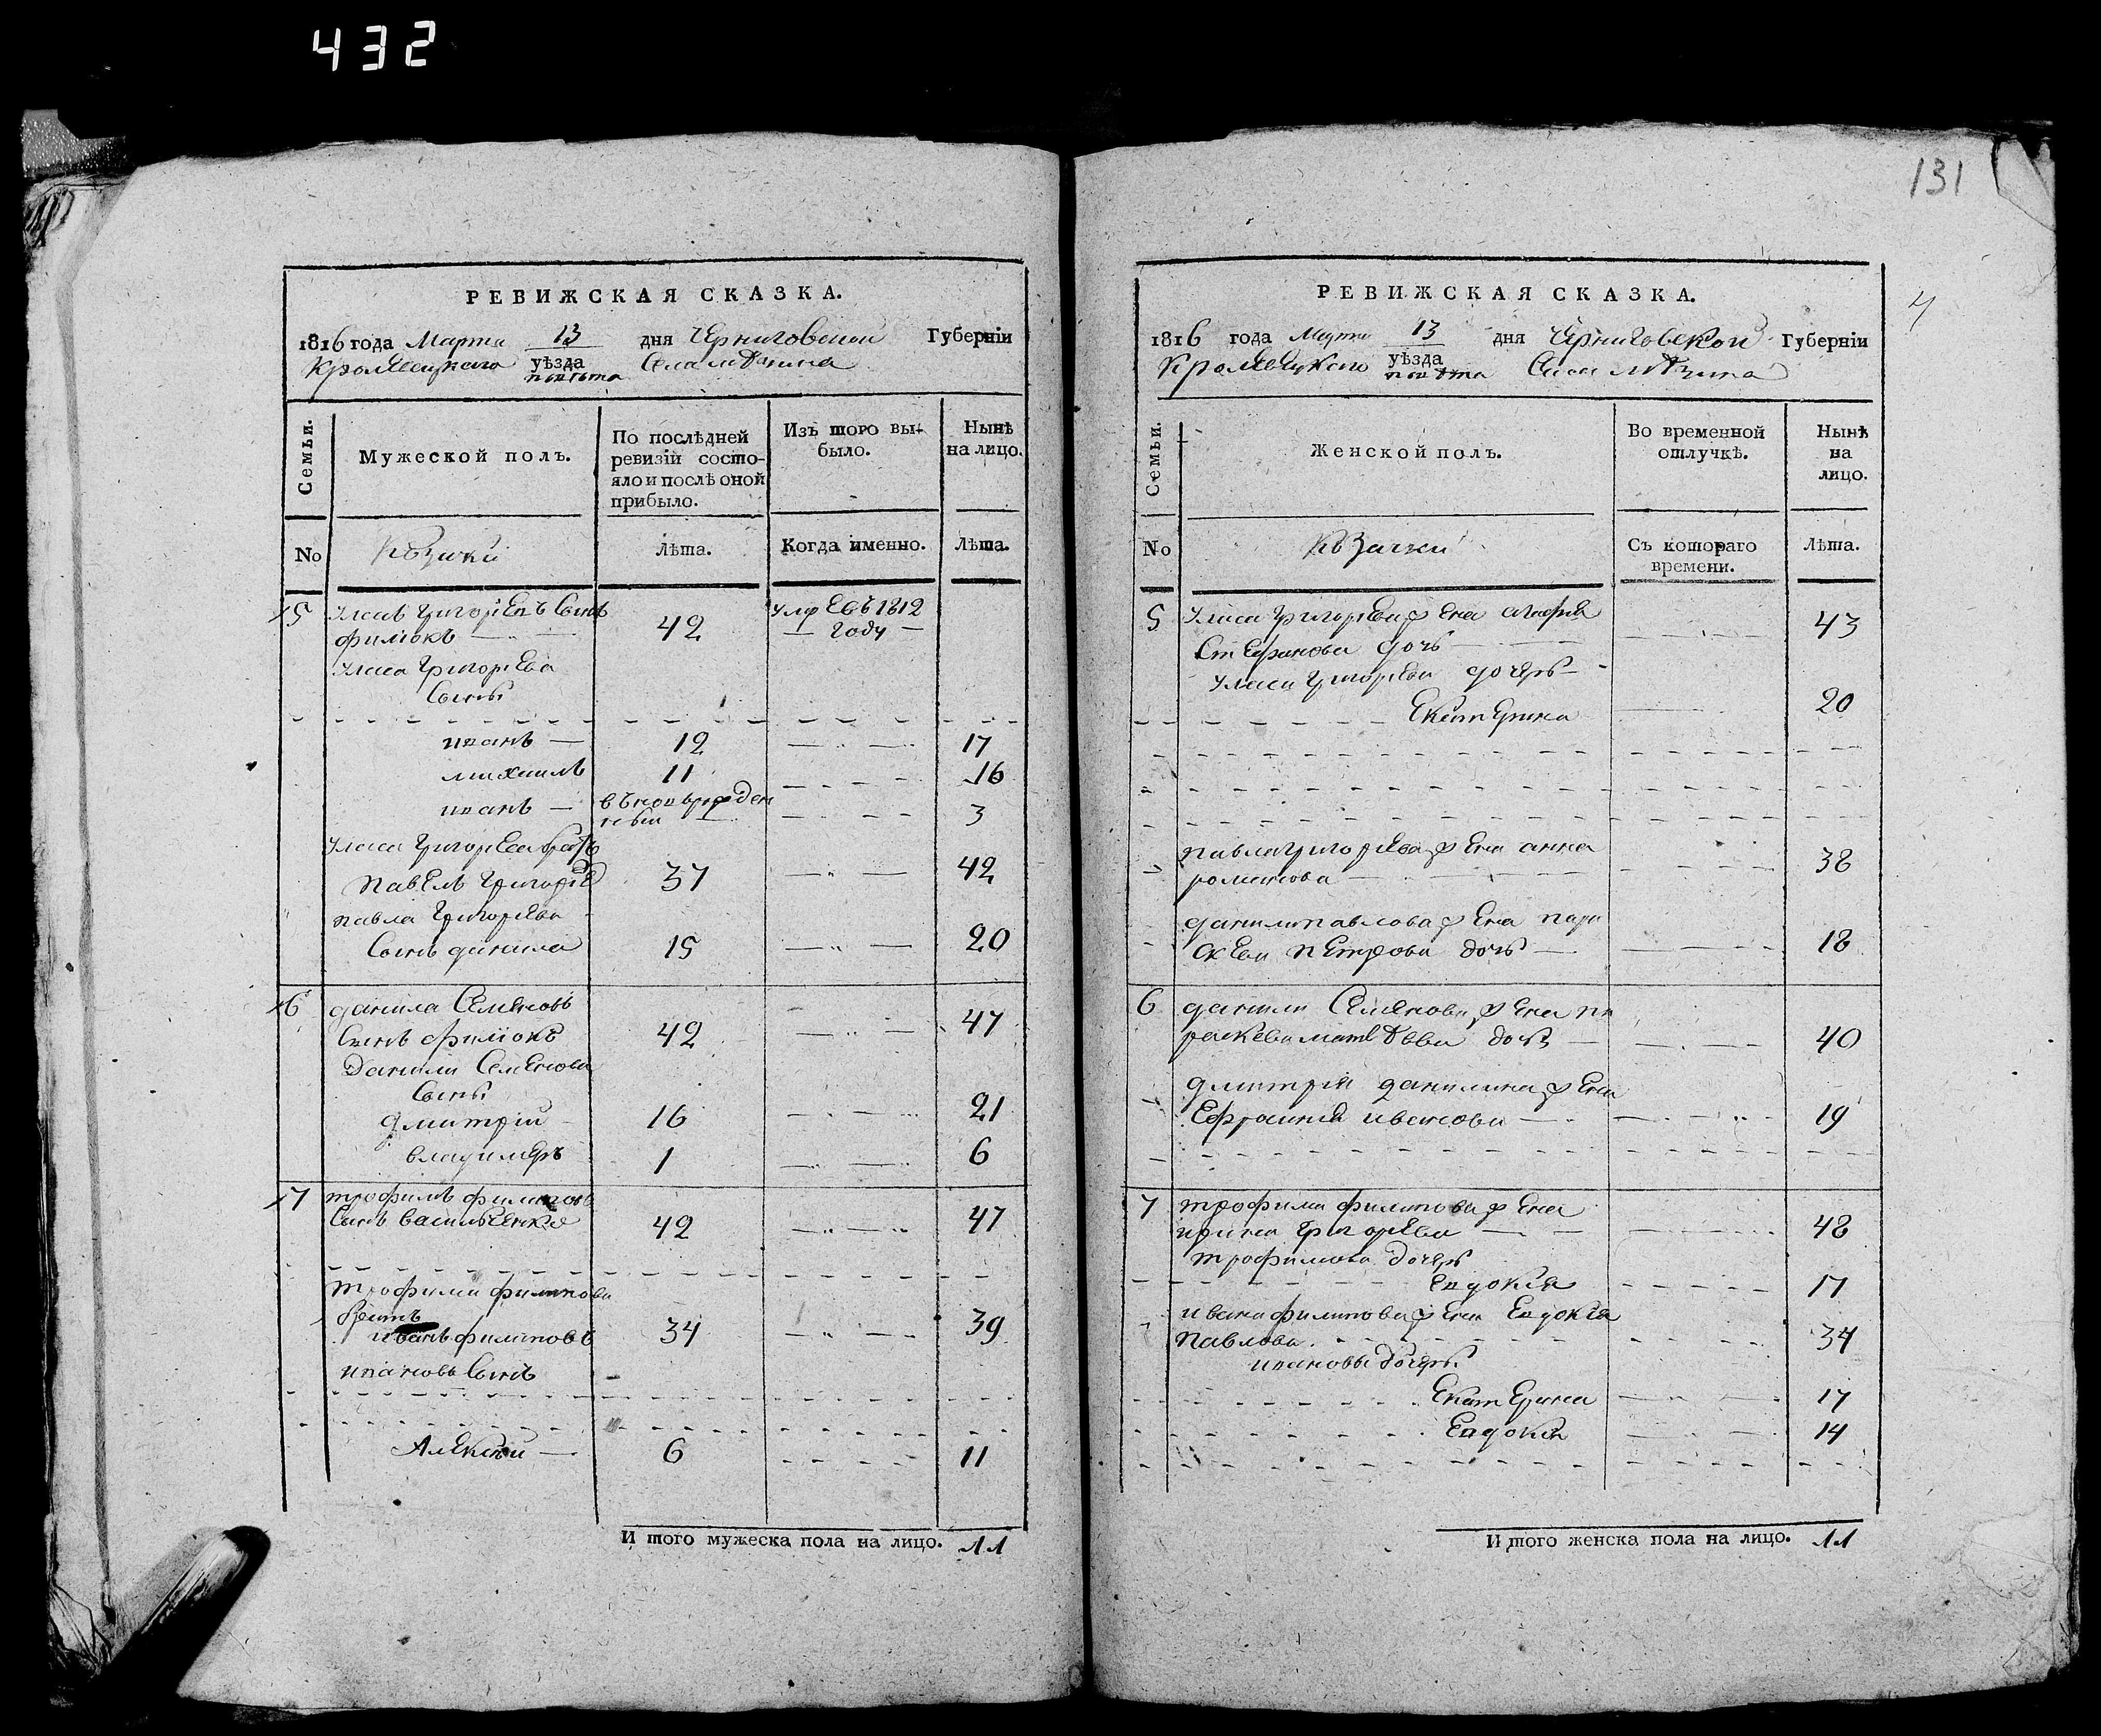 432
131
4
РЕВИЖСКАЯ СКАЗКА.
1816 года Марта 13 дня Черниговской Губерніи
Кролевецкого уѣзда
повѣта
Мужеской полъ.
Семьи.
По послѣдней
ревизіи состо-
яло и послѣ оной
прибыло.
Изъ того вы-
было.
Нынѣ
на лицо.
No
Козаки
лѣта.
Когда именно.
Лѣта.
5 Уласъ Григорьевъ Сынъ
Фимокъ 42 умре въ 1812
году
Уласа Григорьева
Сыны
иванъ 12 17
михаилъ 11 16
иванъ 3
Уласа Григорьева братъ
Павелъ Григорьев 37 42
павла Григорьева
Сынъ данила 15 20
6 данила Семеновъ
Сынъ Фимокъ 42 47
Данила Семенова
Сыны
Дмитрій 16 21
владимеръ 1 6
7 трофимъ филиповъ
Сынъ василченко 42 47
трофима филипова
братъ
иванъ филиповъ 34 39
ивановъ Сынъ
Алексѣй 6 11
И того мужеска пола на лицо. 11
РЕВИЖСКАЯ СКАЗКА.
1816 года Марта 13 дня Черниговской Губерніи
Кролевецкого уѣзда
повѣта
Семьи.
Женской полъ.
Во временной
отлучкѣ.
Нынѣ
на
лицо.
No
Козачки
Съ котораго
времени.
Лѣта.
5 Уласа Григорьева жена
Стефанова дочь 43
Уласа Григорьева дочерь
Екатерина 20
павла григорьева жена анна
романова 38
данила павлова жена пара
скева Петрова дочь 18
6 данила Семенова жена па
раскева матвѣева дочь 40
Дмитрія данилина жена
Ефросинія иванова 19
7 трофима филипова жена
ирина григорьева 48
трофимова дочерь
Евдокия 17
ивана филипова жена Евдокия
Павлова 34
ивановы дочеры
Екатерина 17
Евдокия 14
И того женска пола на лицо. 11